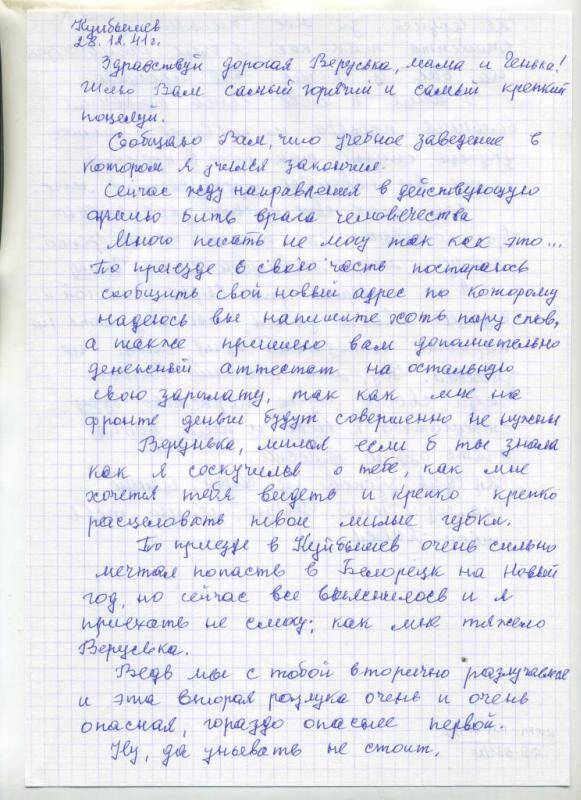 Куйбышев
28.12.41г.
Здравствуй дорогая Веруська, мама и Генька!
Шлю Вам самый горячий и самый крепкий
поцелуй.
Сообщаю Вам, что учебное заведение в
котором я учился закончил.
Сейчас жду направления в действующую
армию бить врага человечества
Много писать не могу так как это...
По приезде в свою часть постараюсь
сообщить свой новый адрес по которому
надеюсь вы напишите хоть пару слов,
а также пришлю вам дополнительно
денежный аттестат на остальную
свою зарплату, так как мне на
фронте деньги будут совершенно не нужны
Верунька, милая если б ты знала
как я соскучился о тебе, как мне
хочется тебя видеть и крепко крепко
расцеловать твои милые губки.
По приезде в Куйбышев очень сильно
мечтал попасть в Белорецк на Новый
год, но сейчас все выяснилось и я
приехать не смогу; как мне тяжело
Веруська.
Ведь мы с тобой вторично разлучаемся
и эта вторая разлука очень и очень
опасная, гораздо опаснее первой.
Ну, да унывать не стоит.